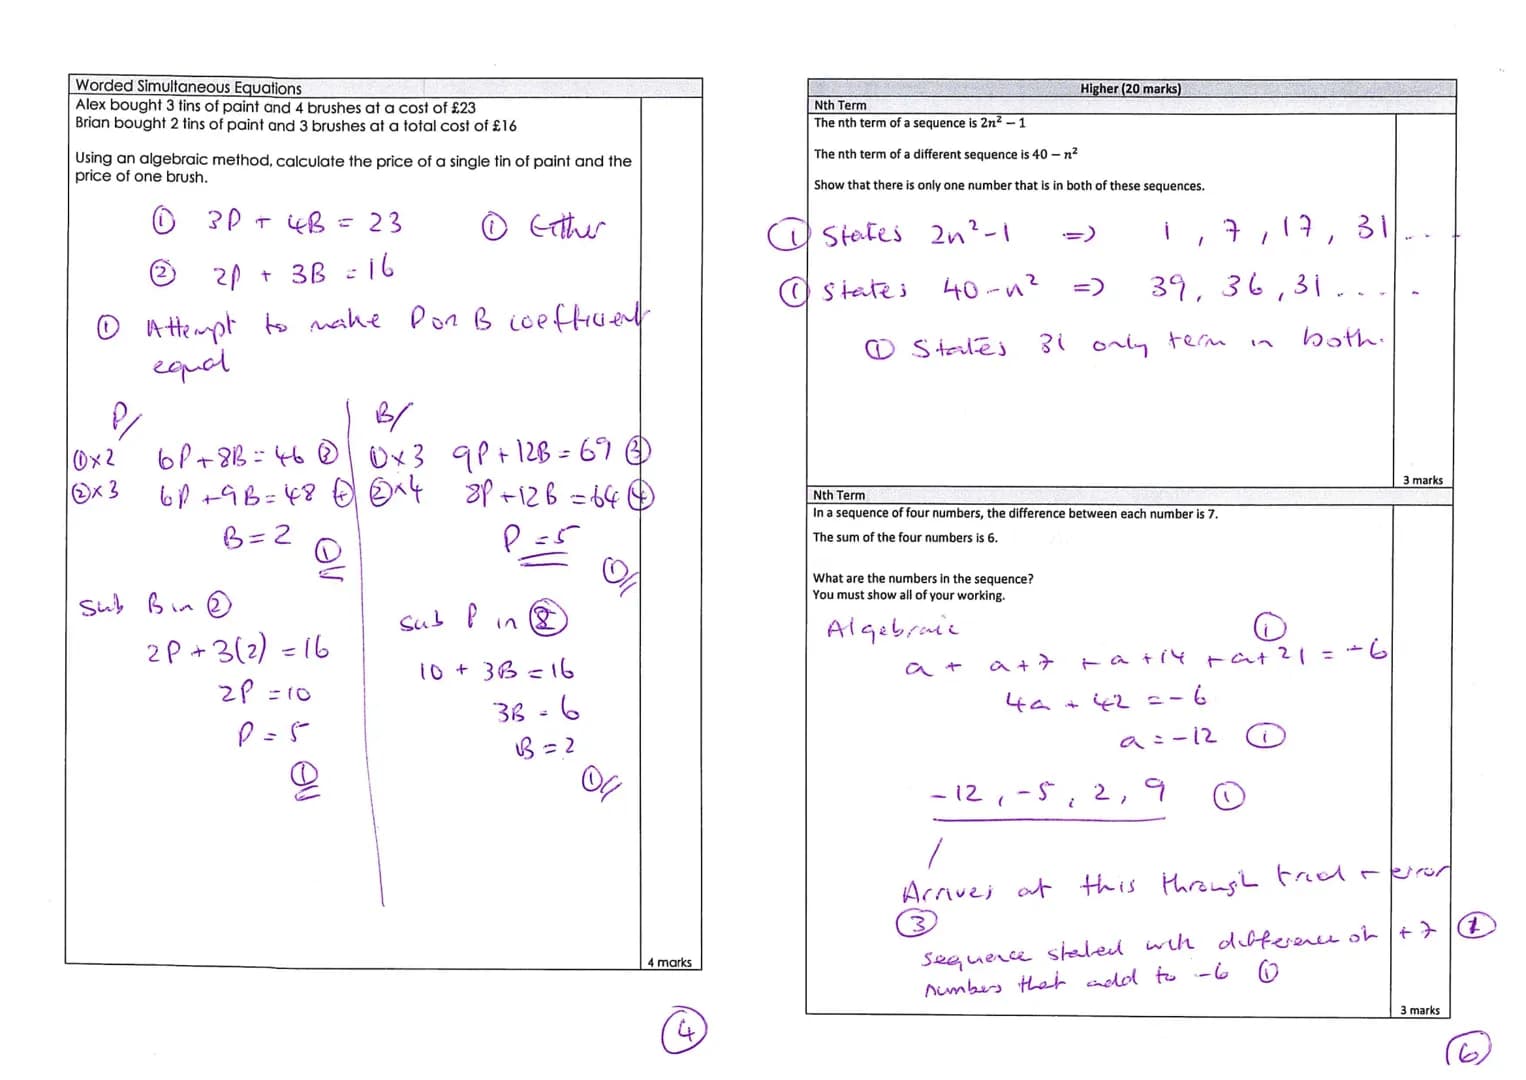 Worded Simultaneous Equations
Alex bought 3 tins of paint and 4 brushes at a cost of £23
Brian bought 2 tins of paint and 3 brushes at a total cost of £16
Using an algebraic method, calculate the price of a single tin of paint and the
price of one brush.
① 3P + 4B = 23 ① Either
② 2P + 3B = 16
① Attempt to make P or B coefficient
equal
P/ B/
①×2 6P + 8B = 46 ③ ①×3 9P + 12B = 69 ③
②×3 6P + 9B = 48 ④ ②×4 8P + 12B = 64 ④
B = 2 ① P = 5 ①
Sub B in ② Sub P in ②
2P + 3(2) = 16 10 + 3B = 16
2P = 10 3B = 6
P = 5 B = 2
① ①
4 marks
④
Higher (20 marks)
Nth Term
The nth term of a sequence is 2n² – 1
The nth term of a different sequence is 40 – n²
Show that there is only one number that is in both of these sequences.
① States 2n²-1 => 1, 7, 17, 31 ...
① States 40-n² => 39, 36, 31 .....
① States 31 only term in both.
3 marks
Nth Term
In a sequence of four numbers, the difference between each number is 7.
The sum of the four numbers is 6.
What are the numbers in the sequence?
You must show all of your working.
Algebraic ①
a + a+7 + a+14 + a+21 = -6
4a + 42 = -6
a = -12 ①
-12, -5, 2, 9 ①
/
Arrives at this through trial + error
③
Sequence stated with difference of +7 ①
numbers that add to -6 ①
3 marks
⑥